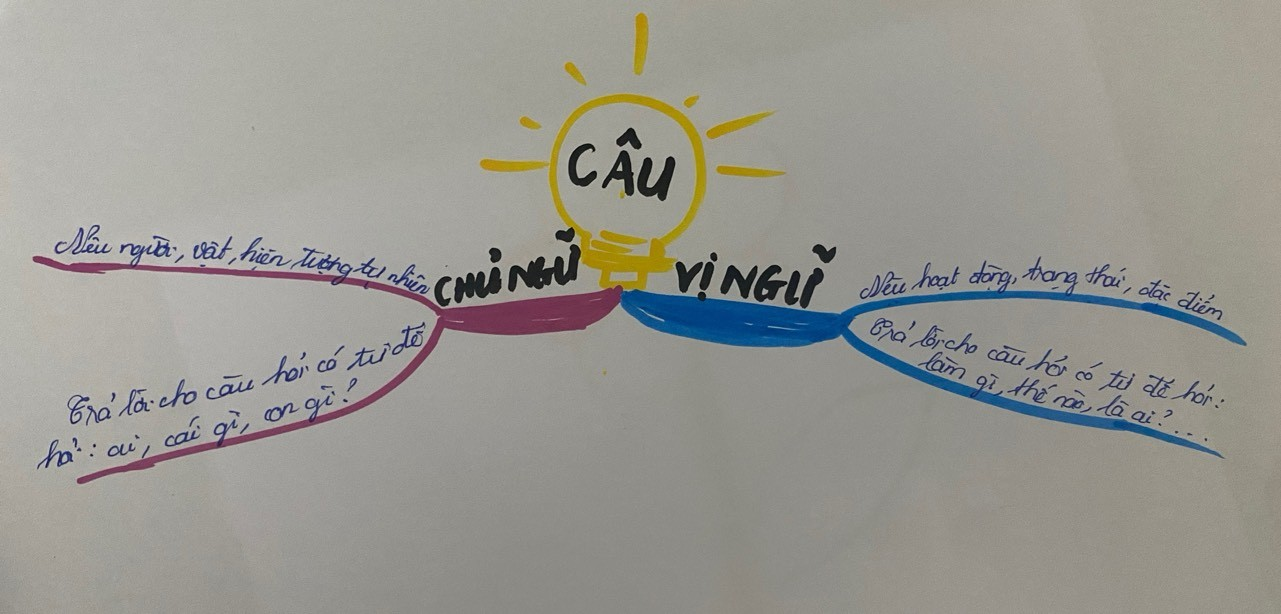 CÂU
CHỦ NGỮ
Nêu người, vật, hiện tượng tự nhiên
Trả lời cho câu hỏi có từ để
hỏi: ai, cái gì, con gì?
VỊ NGỮ
Nêu hoạt động, trạng thái, đặc điểm
Trả lời cho câu hỏi có từ để hỏi:
làm gì, thế nào, là ai?...